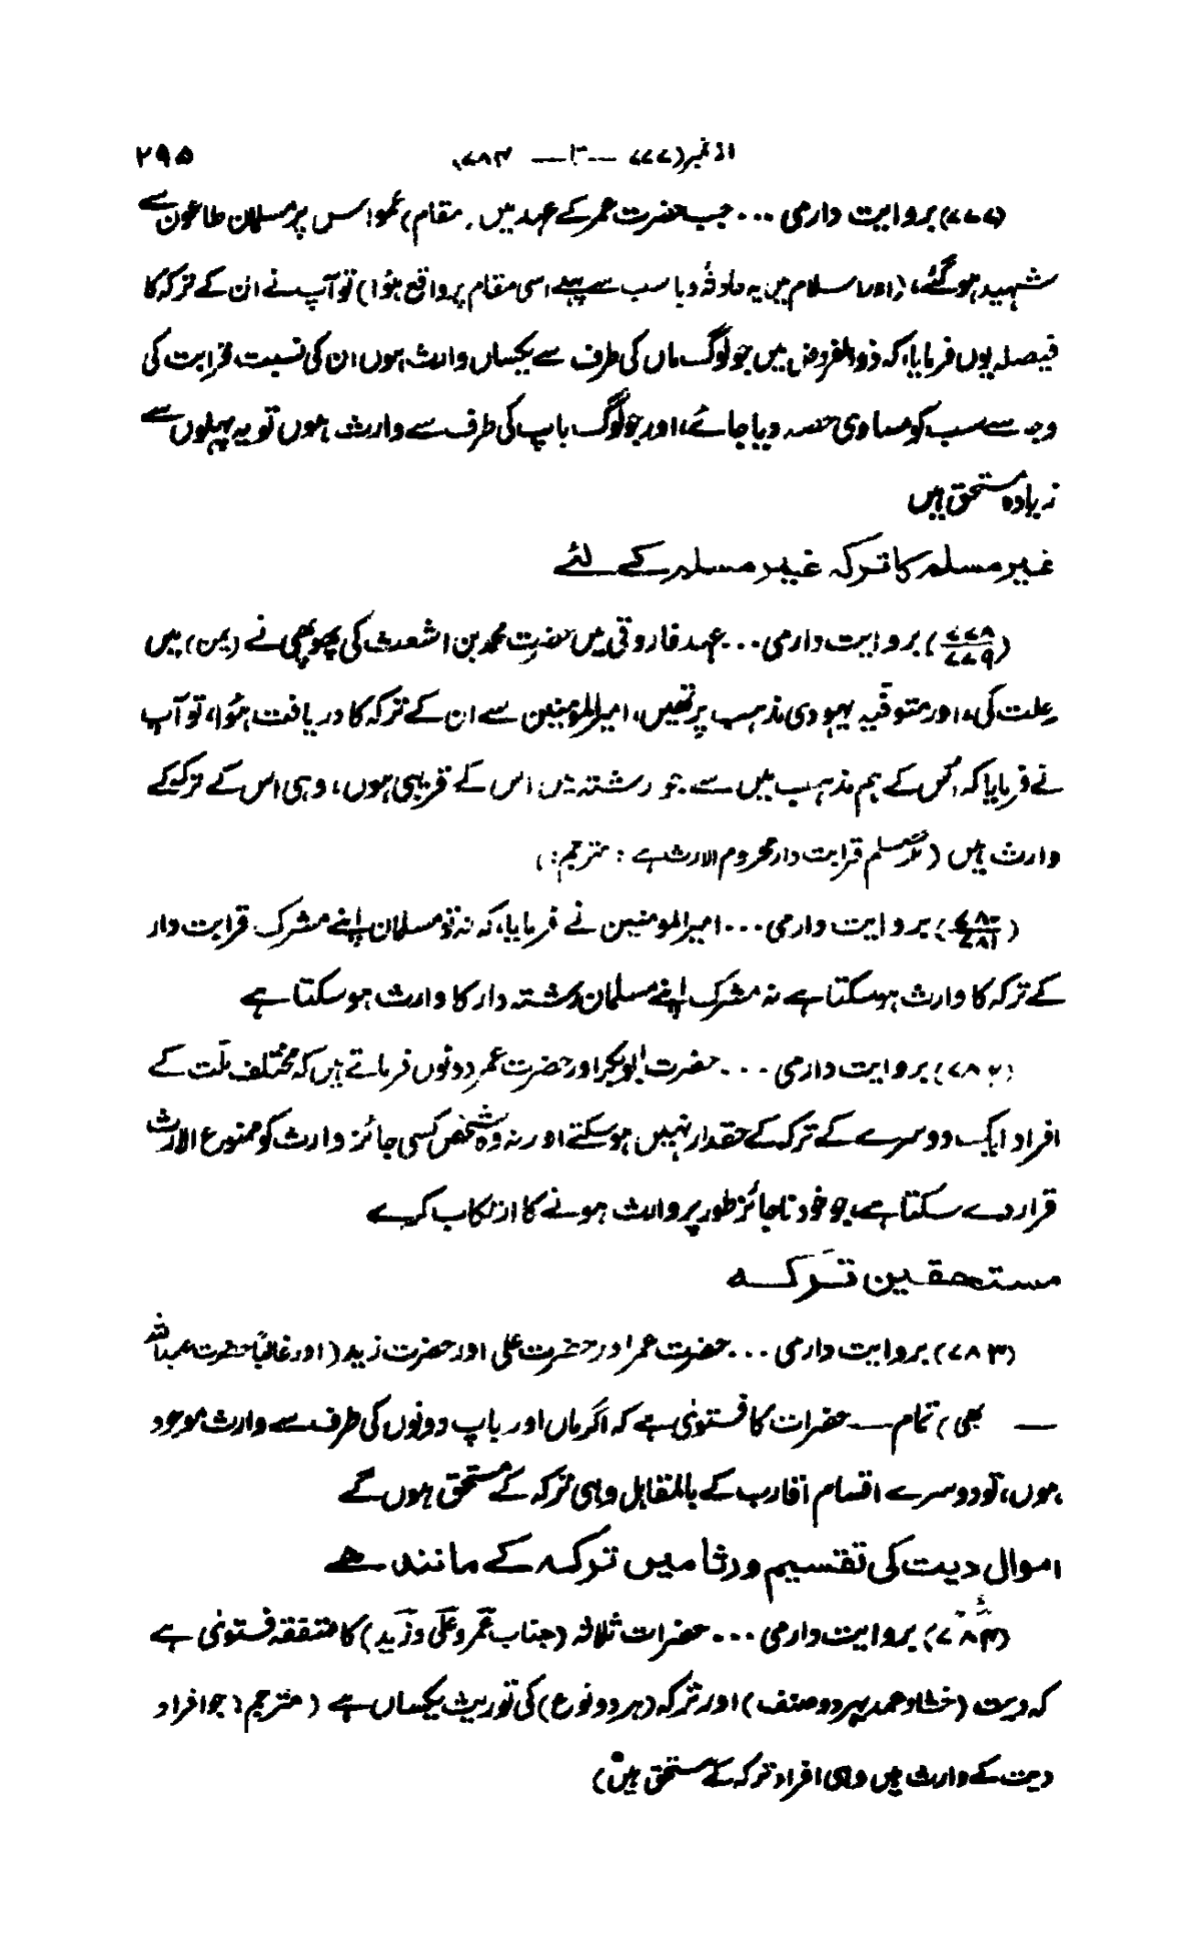 از نمبر (۷۷۷ — تا — ۷۸۴) ۲۹۵
(۷۷۷) بروایت دارمی ... جب حضرت عمر کے عہد میں (مقام) عمواس پر مسلمان طاعون سے
شہید ہو گئے، (اور اسلام میں یہ حادثۂ وبا سب سے پہلے اسی مقام پر واقع ہؤا) تو آپ نے ان کے ترکہ کا
فیصلہ یوں فرمایا، کہ ذو الفروض میں جو لوگ ماں کی طرف سے یکساں وارث ہوں ان کی نسبت قرابت کی
وجہ سے سب کو مساوی حصہ دیا جائے، اور جو لوگ باپ کی طرف سے وارث ہوں تو یہ پہلوں سے
زیادہ مستحق ہیں
غیر مسلم کا ترکہ غیر مسلم کے لئے
(۷۷۸/۷۷۹) بروایت دارمی ... عہد فاروقی میں حضرت محمد بن اشعث کی پھوپھی نے (یمن) میں
رحلت کی، اور متوفیہ یہودی مذہب پر تھیں، امیر المومنین سے ان کے ترکہ کا دریافت ہؤا، تو آپ
نے فرمایا کہ اس کے ہم مذہب میں سے جو رشتہ میں اس کے قریبی ہوں، وہی اس کے ترکہ کے
وارث ہیں (مگر مسلم قرابت دار محروم الارث ہے : مترجم:)
(۷۸۰/۷۸۱) بروایت دارمی ... امیر المومنین نے فرمایا، کہ نہ تو مسلمان اپنے مشرک قرابت دار
کے ترکہ کا وارث ہو سکتا ہے نہ مشرک اپنے مسلمان رشتہ دار کا وارث ہو سکتا ہے
(۷۸۲) بروایت دارمی ... حضرت ابوبکر اور حضرت عمر دونوں فرماتے ہیں کہ مختلف ملّت کے
افراد ایک دوسرے کے ترکہ کے حقدار نہیں ہو سکتے اور نہ وہ شخص کسی جائز وارث کو ممنوع الارث
قرار دے سکتا ہے، جو خود ناجائز طور پر وارث ہونے کا ارتکاب کرے
مستحقین ترکہ
(۷۸۳) بروایت دارمی ... حضرت عمر اور حضرت علی اور حضرت زید (اور غالباً حضرت عبداللہ
— بھی) تمام — حضرات کا فتویٰ ہے کہ اگر ماں اور باپ دونوں کی طرف سے وارث موجود
ہوں، تو دوسرے اقسام اقارب کے بالمقابل وہی ترکہ کے مستحق ہوں گے
اموال دیت کی تقسیم ورثا میں ترکہ کے مانند ہے
(۷۸۴) بروایت دارمی ... حضرات ثلاثہ (جناب عمر و علی و زید) کا متفقہ فتویٰ ہے
کہ دیت (خطا و عمد ہر دو صنف) اور ترکہ (ہر دو نوع) کی توریث یکساں ہے (مترجم: جو افراد
دیت کے وارث ہیں وہی افراد ترکہ کے مستحق ہیں)